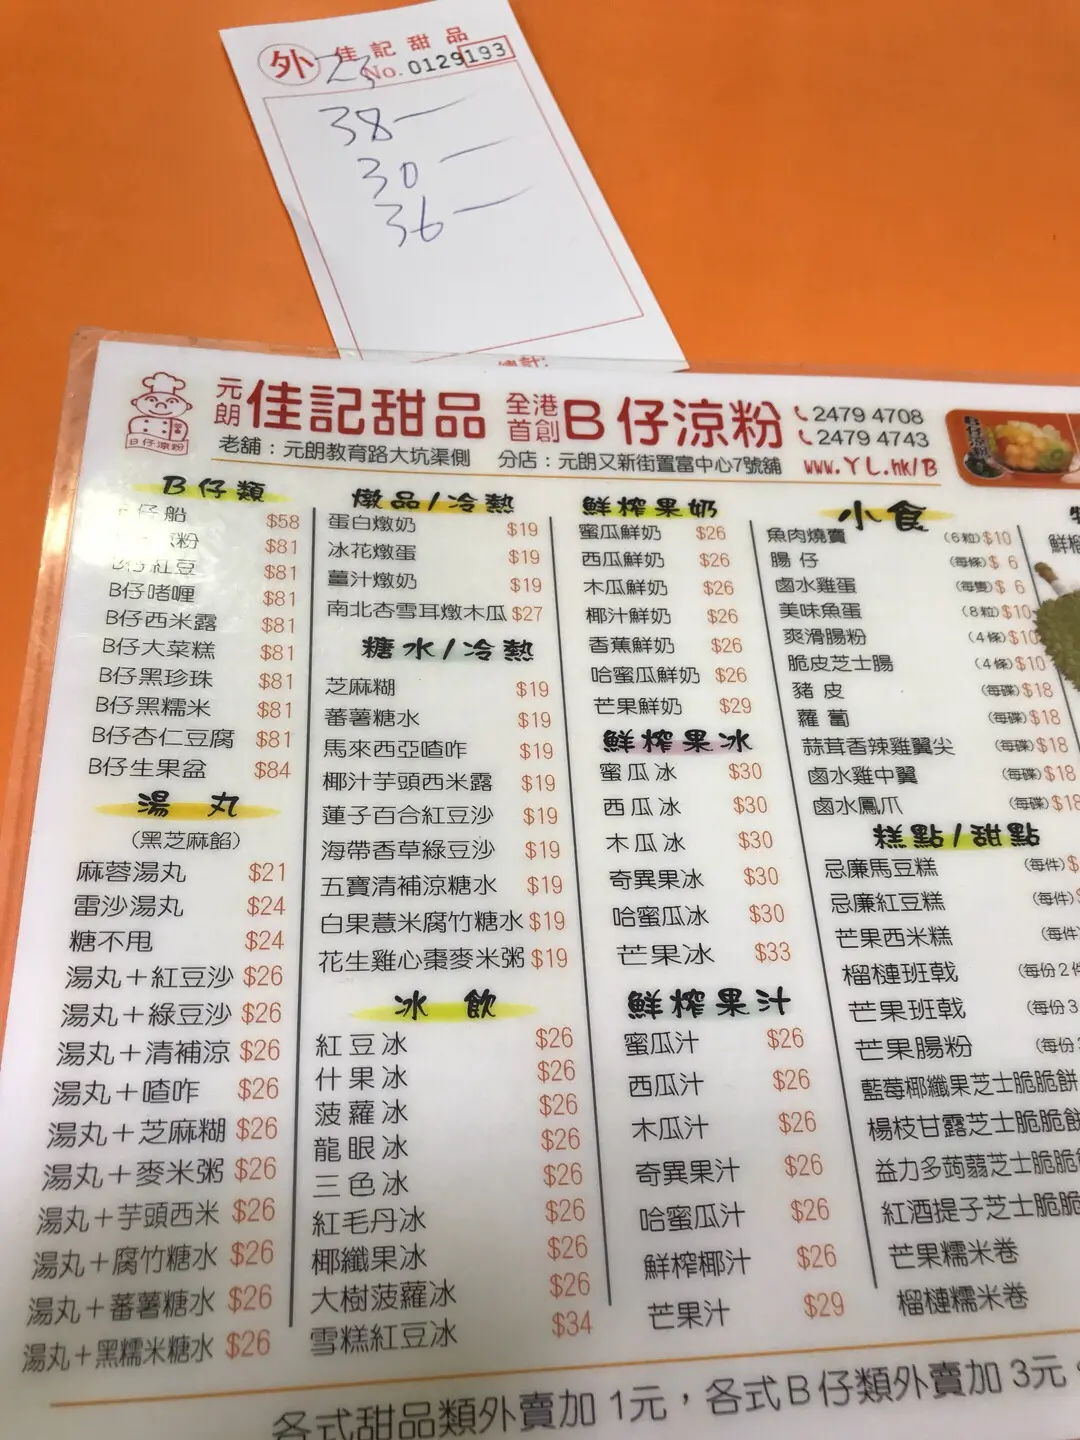 外 佳記甜品
No. 0129193
23
38一
30一
36一
總計:
元朗 佳記甜品 全港首創 B仔涼粉 2479 4708
2479 4743
B仔涼粉
老舖：元朗教育路大坑渠側 分店：元朗又新街置富中心7號舖 www.YL.hk/B
B仔類
仔船 $58
粉 $81
B仔紅豆 $81
B仔啫喱 $81
B仔西米露 $81
B仔大菜糕 $81
B仔黑珍珠 $81
B仔黑糯米 $81
B仔杏仁豆腐 $81
B仔生果盆 $84
湯丸
(黑芝麻餡)
麻蓉湯丸 $21
雷沙湯丸 $24
糖不甩 $24
湯丸＋紅豆沙 $26
湯丸＋綠豆沙 $26
湯丸＋清補涼 $26
湯丸＋喳咋 $26
湯丸＋芝麻糊 $26
湯丸＋麥米粥 $26
湯丸＋芋頭西米 $26
湯丸＋腐竹糖水 $26
湯丸＋蕃薯糖水 $26
湯丸＋黑糯米糖水 $26
燉品/冷熱
蛋白燉奶 $19
冰花燉蛋 $19
薑汁燉奶 $19
南北杏雪耳燉木瓜 $27
糖水/冷熱
芝麻糊 $19
蕃薯糖水 $19
馬來西亞喳咋 $19
椰汁芋頭西米露 $19
蓮子百合紅豆沙 $19
海帶香草綠豆沙 $19
五寶清補涼糖水 $19
白果薏米腐竹糖水 $19
花生雞心棗麥米粥 $19
冰飲
紅豆冰 $26
什果冰 $26
菠蘿冰 $26
龍眼冰 $26
三色冰 $26
紅毛丹冰 $26
椰纖果冰 $26
大樹菠蘿冰 $26
雪糕紅豆冰 $34
鮮榨果奶
蜜瓜鮮奶 $26
西瓜鮮奶 $26
木瓜鮮奶 $26
椰汁鮮奶 $26
香蕉鮮奶 $26
哈蜜瓜鮮奶 $26
芒果鮮奶 $29
鮮榨果冰
蜜瓜冰 $30
西瓜冰 $30
木瓜冰 $30
奇異果冰 $30
哈蜜瓜冰 $30
芒果冰 $33
鮮榨果汁
蜜瓜汁 $26
西瓜汁 $26
木瓜汁 $26
奇異果汁 $26
哈蜜瓜汁 $26
鮮榨椰汁 $26
芒果汁 $29
小食
魚肉燒賣 (6粒) $10
腸仔 (每條) $6
鹵水雞蛋 (每隻) $6
美味魚蛋 (8粒) $10
爽滑腸粉 (4條) $10
脆皮芝士腸 (4條) $10
豬皮 (每碟) $18
蘿蔔 (每碟) $18
蒜茸香辣雞翼尖 (每碟) $18
鹵水雞中翼 (每碟) $18
鹵水鳳爪 (每碟) $18
糕點/甜點
忌廉馬豆糕 (每件) $
忌廉紅豆糕 (每件) $
芒果西米糕 (每件)
榴槤班戟 (每份2件
芒果班戟 (每份3
芒果腸粉 (每份
藍莓椰纖果芝士脆脆餅
楊枝甘露芝士脆脆餅
益力多蒟蒻芝士脆脆
紅酒提子芝士脆脆
芒果糯米卷
榴槤糯米卷
鮮榴
各式甜品類外賣加 1元，各式B仔類外賣加 3元。